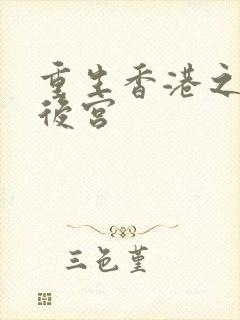 重生香港之
後宮
三色堇